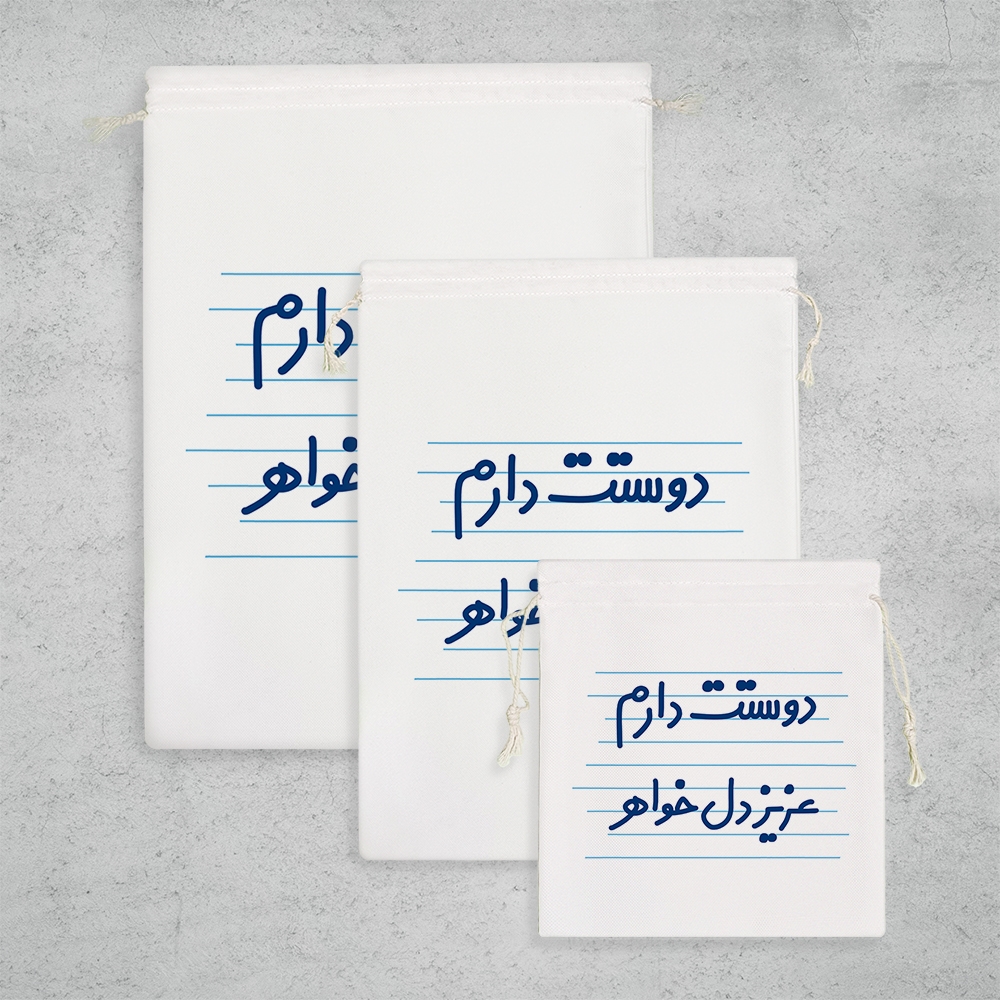 دارم
خواهر
دوستت دارم
خواهر
دوستت دارم
عزیز دل خواهر